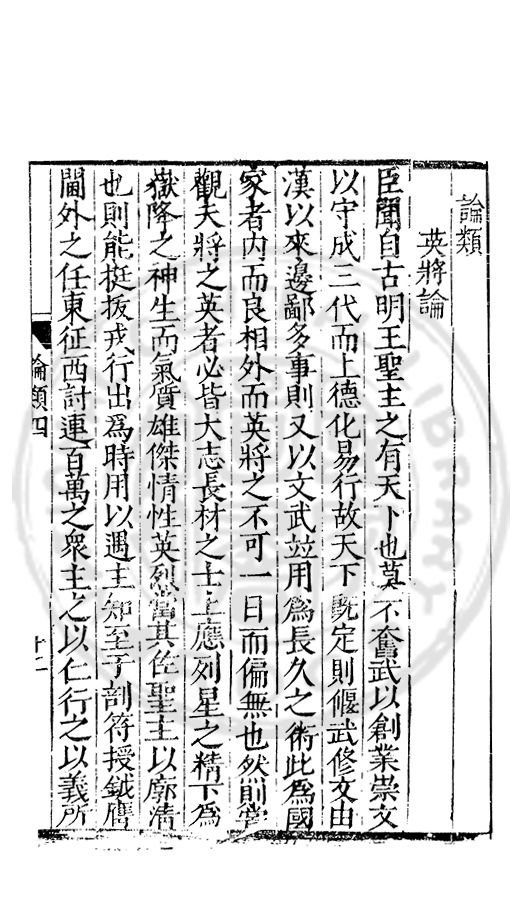 論類
英將論
臣聞自古明王聖主之有天下也莫不奮武以創業崇文
以守成三代而上德化易行故天下既定則偃武修文由
漢以來邊鄙多事則又以文武並用為長久之術此為國
家者内而良相外而英將之不可一日而偏無也然前嘗
觀夫將之英者必皆大志長材之士上應列星之精下為
嶽降之神生而氣質雄傑情性英烈當其佐聖主以廓清
也則能挺拔戎行出為時用以遇主知至于剖符授鉞膺
閫外之任東征西討連百萬之衆主之以仁行之以義所
論類四
十二